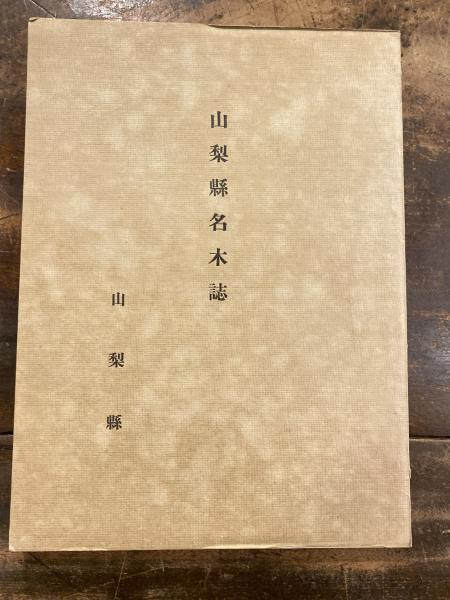 山梨縣名木誌
山梨縣